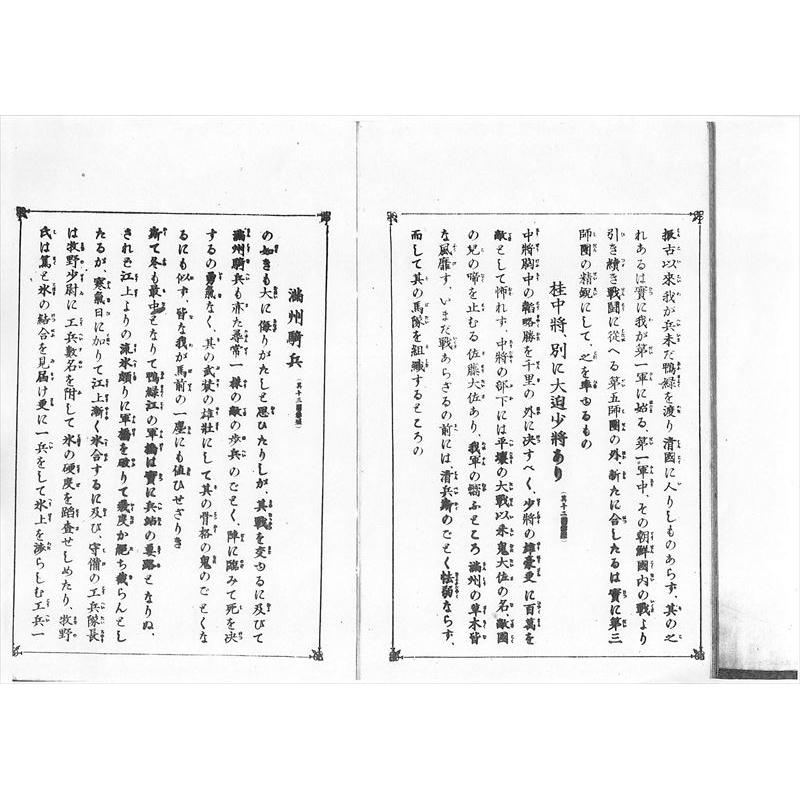 振古以來我が兵未だ鴨緑を渡り清國に入りしものあらず、其の之
れあるは實に我が第一軍に始る、第一軍中、その朝鮮國內の戰より
引き續き戰鬪に從へる第五師團の外、新たに合したるは實に第三
師團の精鋭にして、之を率ゐるもの
桂中將、別に大迫少將あり
中將胸中の韜略勝を千里の外に決すべく、少將の雄豪更に百萬を
敵として怖れず、中將の部下には平壤の大戰以來鬼大佐の名、敵國
の兒の啼を止むる佐藤大佐あり、我軍の嚮ふところ滿州の草木皆
な風靡す、いまだ戰あらざるの前には、淸兵斯のごとく怯弱ならず、
而して其の馬隊を組織するところの
滿州騎兵
の如きも大に侮りがたしと思ひたりしが、其戰を交ゆるに及びて
滿州騎兵も亦た尋常一樣の敵の歩兵のごとく、陣に臨みて死を決
するの勇氣なく、其の武裝の雄壯にして其の骨格の鬼のごとくな
るにも似ず、皆な我が馬前の一塵にも値ひせざりき
斯て冬も最中となりて鴨綠江の軍橋は實に兵站の要路となりぬ、
されど江上よりの流氷頗りに軍橋を破りて幾度か絕ち截らんとし
たるが、寒氣日に加りて江上漸く氷合するに及び、守備の工兵隊長
は牧野少尉に工兵數名を附して氷の硬度を踏査せしめたり、牧野
氏は篤と氷の結合を見屆け更に一兵をして氷上を涉らしむ工兵一